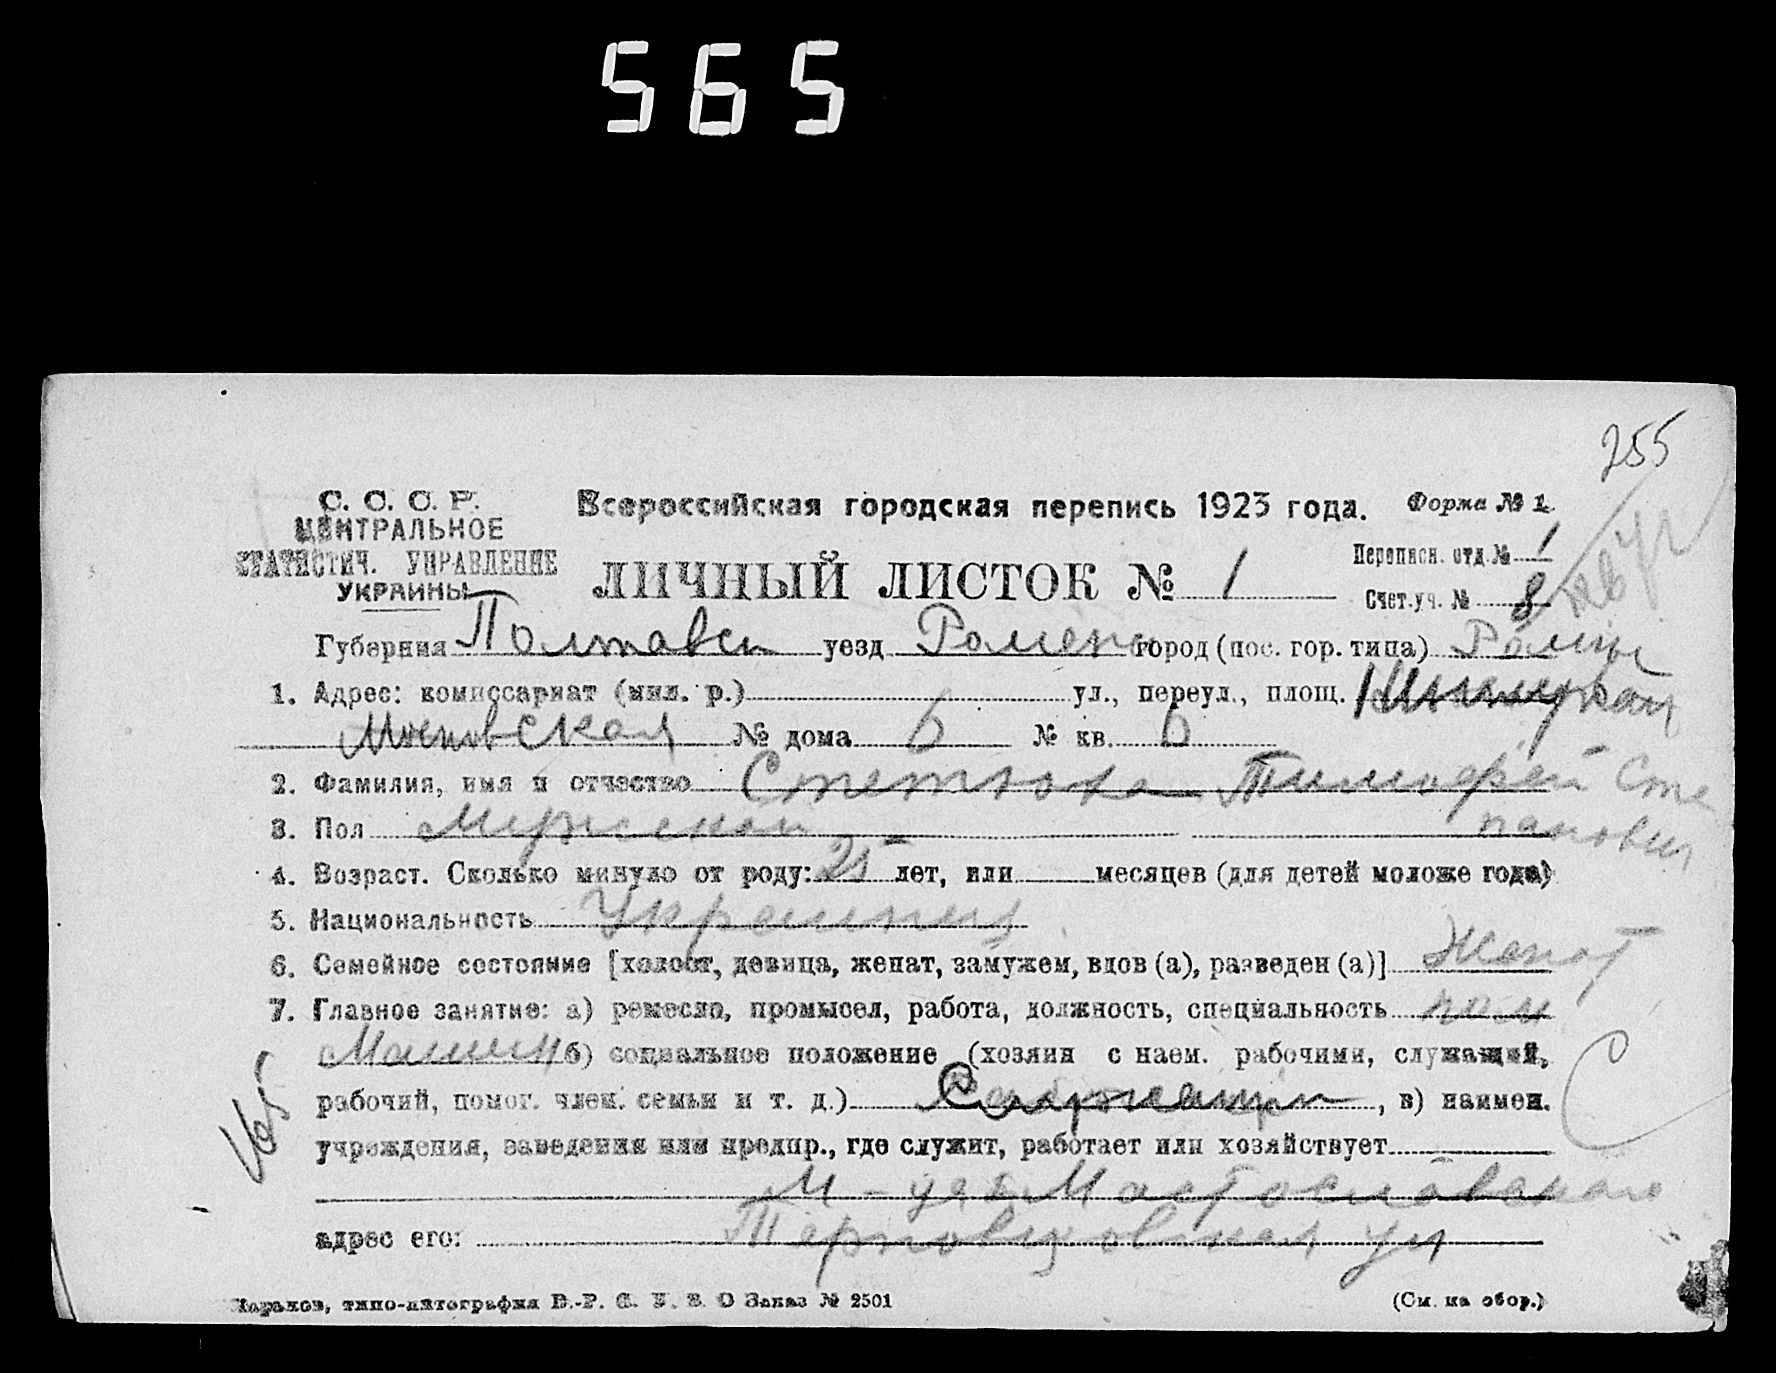 565
255
С. С. С. Р.
ЦЕНТРАЛЬНОЕ
СТАТИСТИЧ. УПРАВЛЕНИЕ
УКРАИНЫ
Всероссийская городская перепись 1923 года.
Форма № 1.
ЛИЧНЫЙ ЛИСТОК № 1
Переписн. отд. № 1
Счет.уч. № 8
Губерния Полтавск уезд Роменс город (пос. гор. типа) Ромны
1. Адрес: комиссариат (мил. р.) ул., переул., площ.
Московская № дома 6 № кв. 6
2. Фамилия, имя и отчество Стетюха Тимофей Сте
панович
3. Пол Мужской
4. Возраст. Сколько минуло от роду: 25 лет, или месяцев (для детей моложе года)
5. Национальность Украинец
6. Семейное состояние [холост, девица, женат, замужем, вдов (а), разведен (а)] Женат
7. Главное занятие: а) ремесло, промысел, работа, должность, специальность пом
Машин б) социальное положение (хозяин с наем. рабочими, служащий,
рабочий, помог. член. семьи и т. д.) Служащий, в) наимен.
учреждения, заведения или предпр., где служит, работает или хозяйствует
адрес его: ул
Харьков, типо-литография В.-Р. С. У. В. О Заказ № 2501
(См. на обор.)